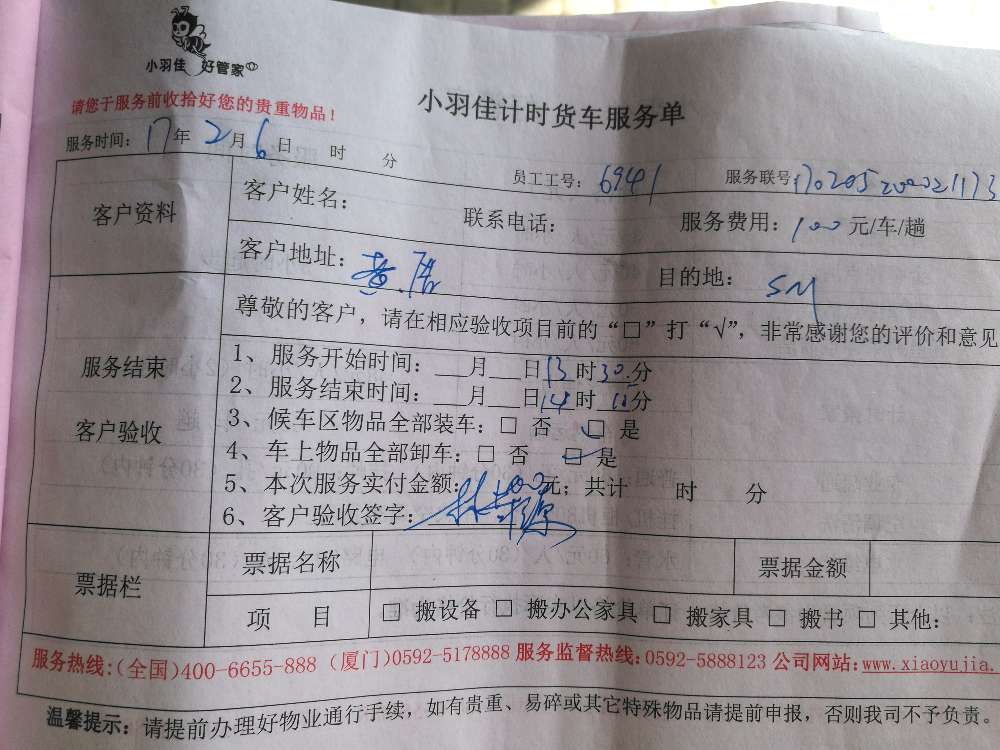 小羽佳 好管家
请您于服务前收拾好您的贵重物品！
小羽佳计时货车服务单
服务时间：17年2月6日 时 分
员工工号：6941 服务联号
客户资料
客户姓名： 联系电话： 服务费用：100元/车/趟
客户地址：黄居 目的地：SM
尊敬的客户，请在相应验收项目前的“□”打“√”，非常感谢您的评价和意见
服务结束
客户验收
1、服务开始时间：__月__日13时30分
2、服务结束时间：__月__日14时15分
3、候车区物品全部装车：□ 否 □ 是
4、车上物品全部卸车：□ 否 □ 是
5、本次服务实付金额：100元；共计 时 分
6、客户验收签字：
票据栏
票据名称 票据金额
项 目 □ 搬设备 □ 搬办公家具 □ 搬家具 □ 搬书 □ 其他：
服务热线：(全国)400-6655-888 (厦门)0592-5178888 服务监督热线：0592-5888123 公司网站：www.xiaoyujia.
温馨提示：请提前办理好物业通行手续，如有贵重、易碎或其它特殊物品请提前申报，否则我司不予负责。